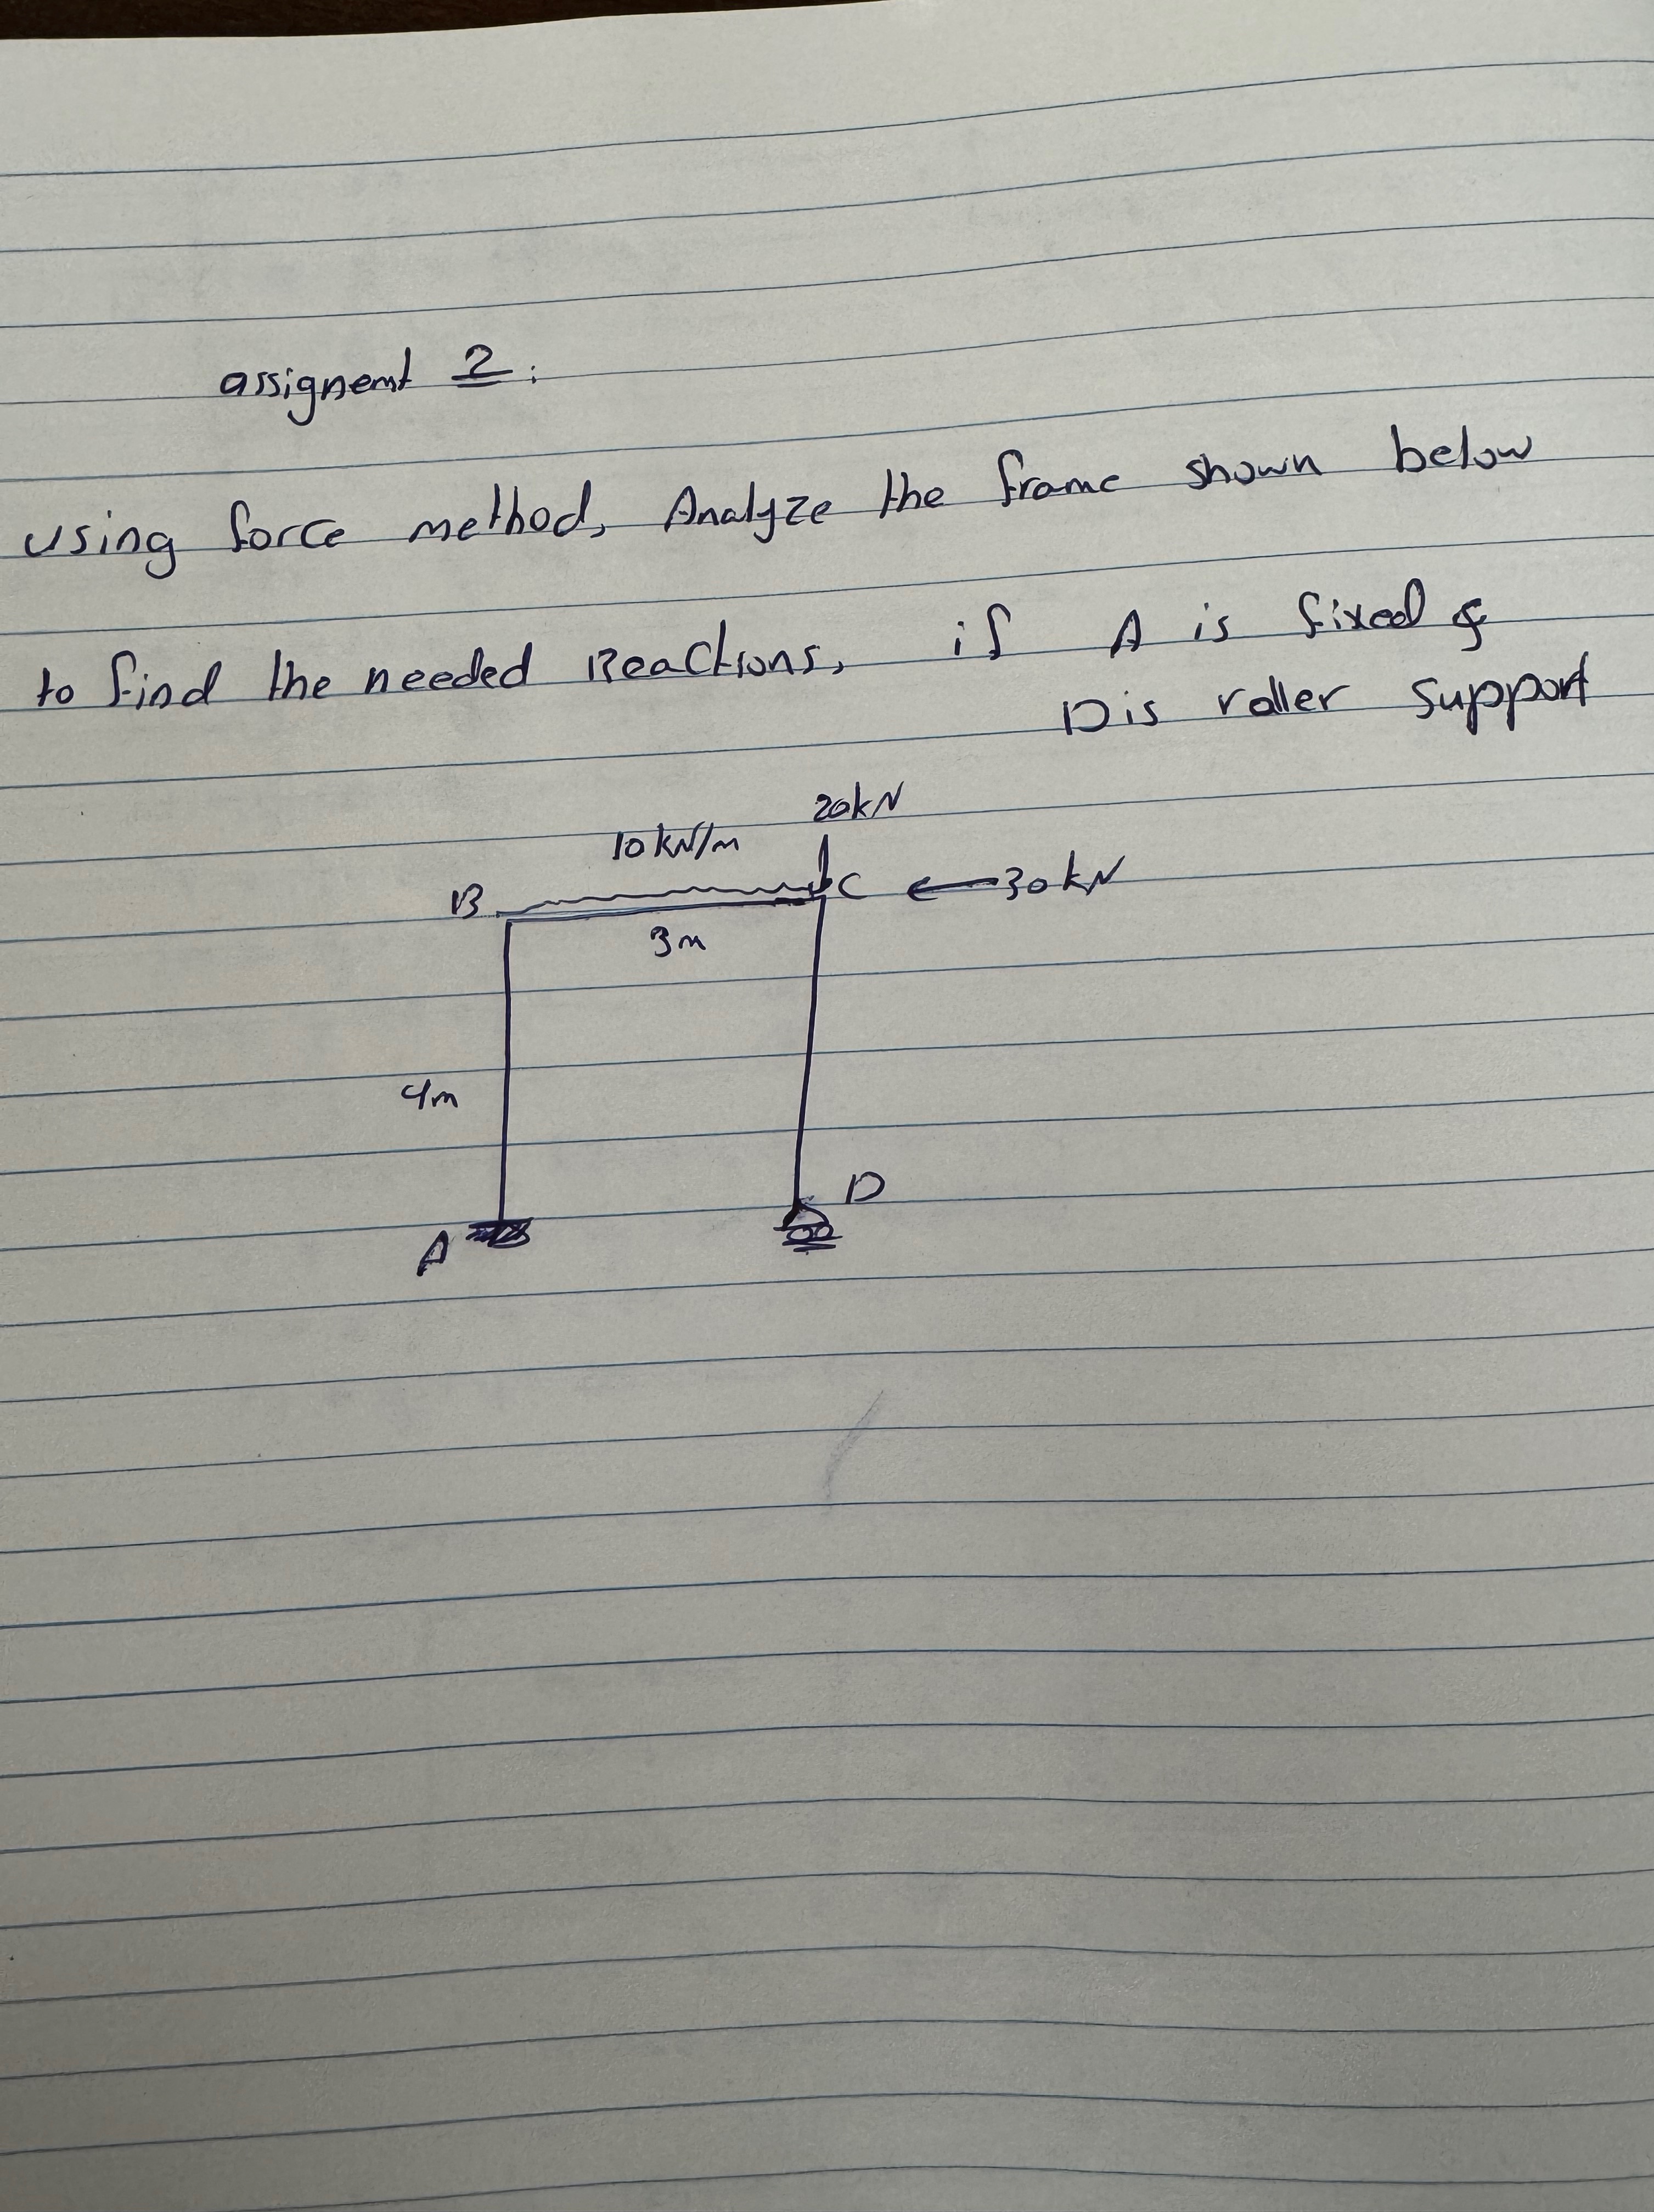 assignemt 2:
using force method, Analyze the frame shown below
to find the needed Reactions, if A is fixed &
D is roller support
20kN
10 kN/m
B
C
30 kN
3m
4m
D
A